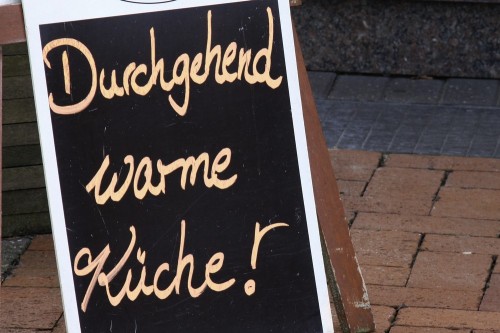 Durchgehend
warme
Küche!